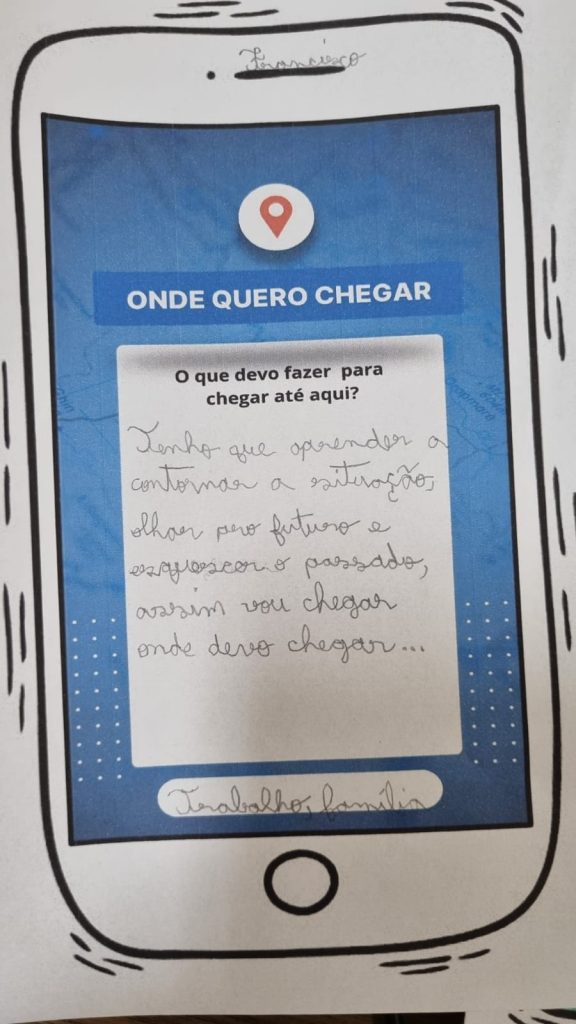 Francisco
ONDE QUERO CHEGAR
O que devo fazer para
chegar até aqui?
Tenho que aprender a
contornar a situação,
olhar pro futuro e
esquescer o passado,
assim vou chegar
onde devo chegar...
Trabalho, família